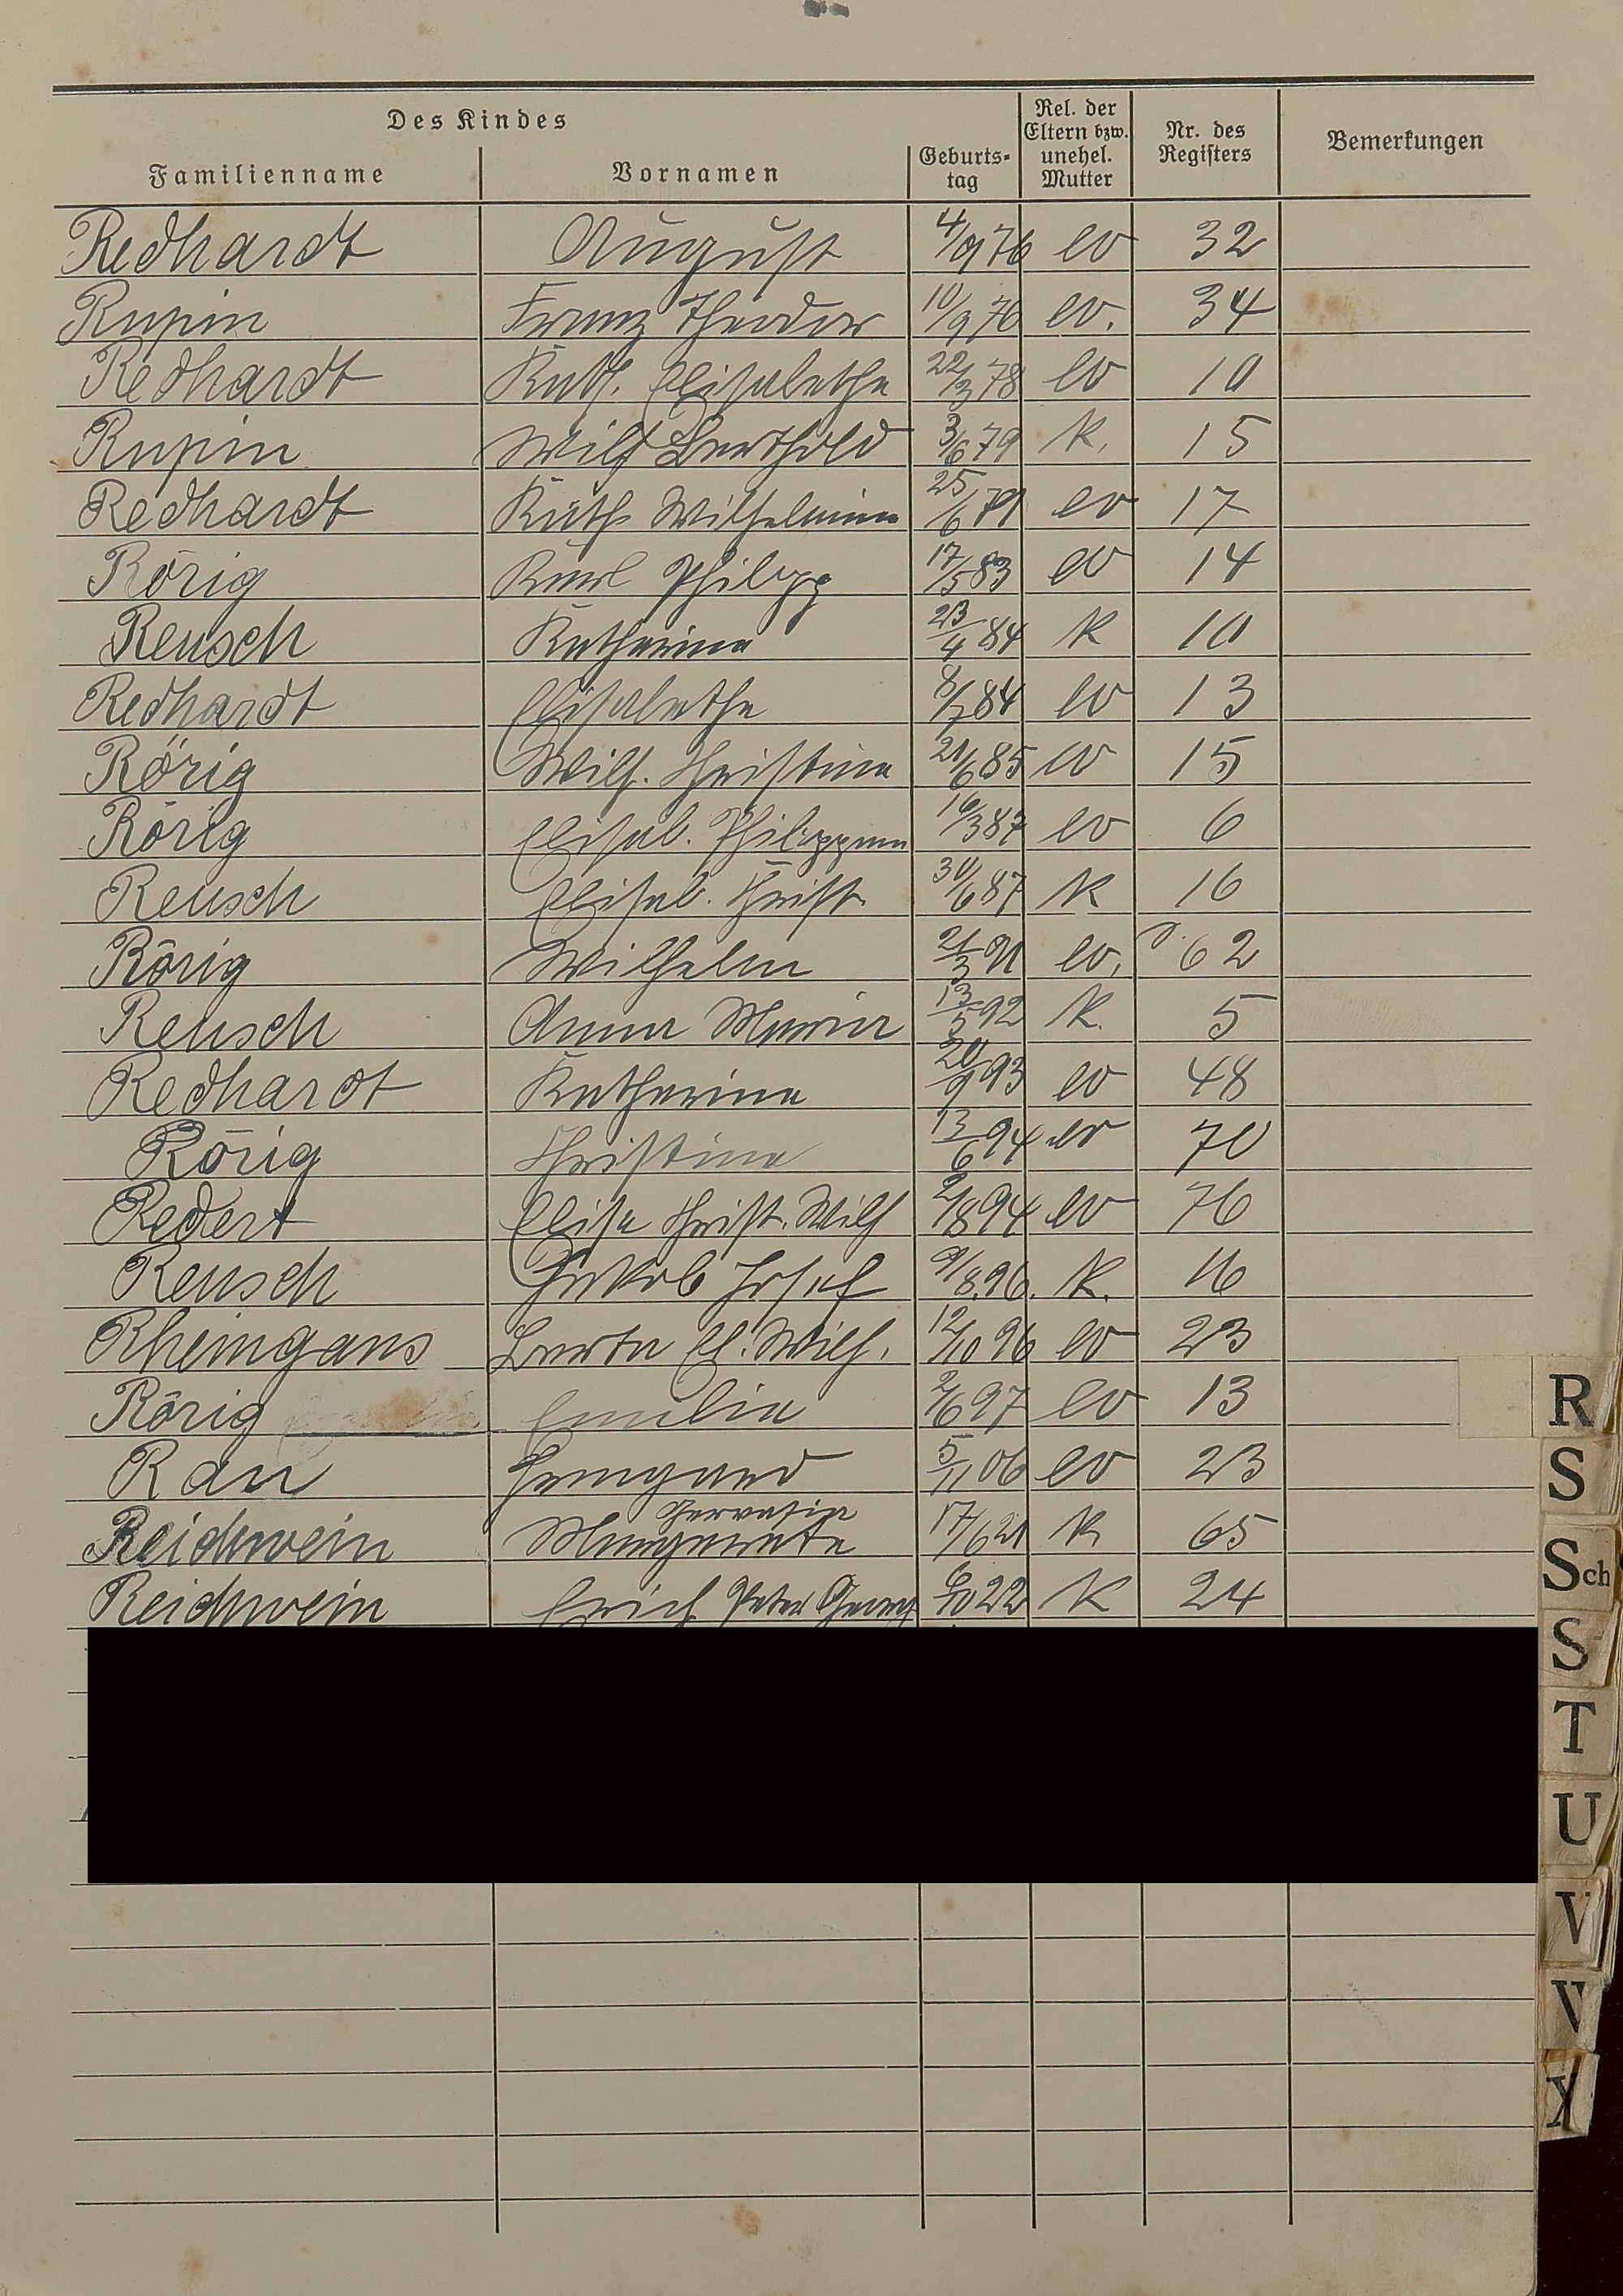 Des Kindes
Familienname Vornamen Geburts-tag Rel. der Eltern bzw. unehel. Mutter Nr. des Registers Bemerkungen
Redhardt August 4/9 76 ev 32
Rupin Franz Theodor 10/9 76 ev. 34
Redhardt Kath. Elisabetha 22/3 78 ev 10
Rupin Wilh Berthold 3/6 79 K. 15
Redhardt Kath Wilhelmine 25/6 79 ev 17
Rörig Karl Philipp 17/5 83 ev 14
Reusch Katharina 23/4 84 K 10
Redhardt Elisabetha 8/7 84 ev 13
Rörig Wilh. Christina 21/6 85 ev 15
Rörig Elisab. Philippine 16/3 87 ev 6
Reusch Elisab. Christ. 30/6 87 K 16
Rörig Wilhelm 21/3 91 ev. 62
Reusch Anna Maria 13/5 92 K. 5
Redhardt Katharina 20/9 93 ev 48
Rörig Christina 13/6 94 ev 70
Redert Elisa Christ. Wilh 2/8 94 ev 76
Reusch Jakob Josef 9/8 96. K. 16
Rheingans Berta El. Wilh. 12/10 96 ev 23
Rörig Emilie 2/6 97 ev 13
Rau Irmgard 5/11 06 ev 23
Gervasia
Reichwein Margareta 17/6 21 K 65
Reichwein Erich Peter Georg 6/10 22 K 24
R
S
Sch
S
T
U
V